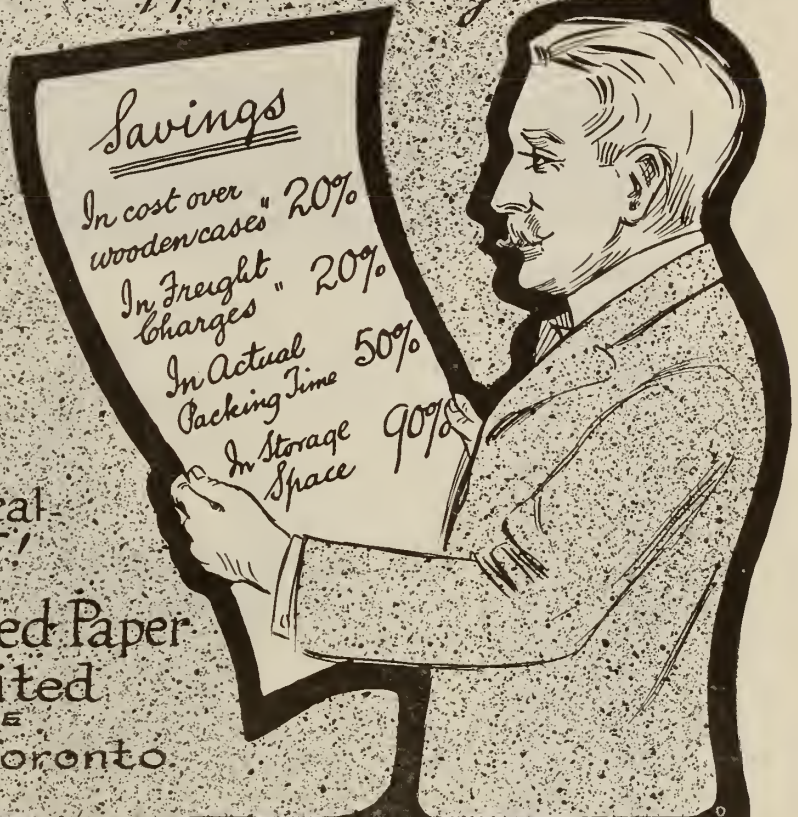 Savings
In cost over
wooden cases " 20%
In Freight
Charges " 20%
In Actual
Packing Time 50%
In Storage
Space 90%
ed Paper
ited
oronto